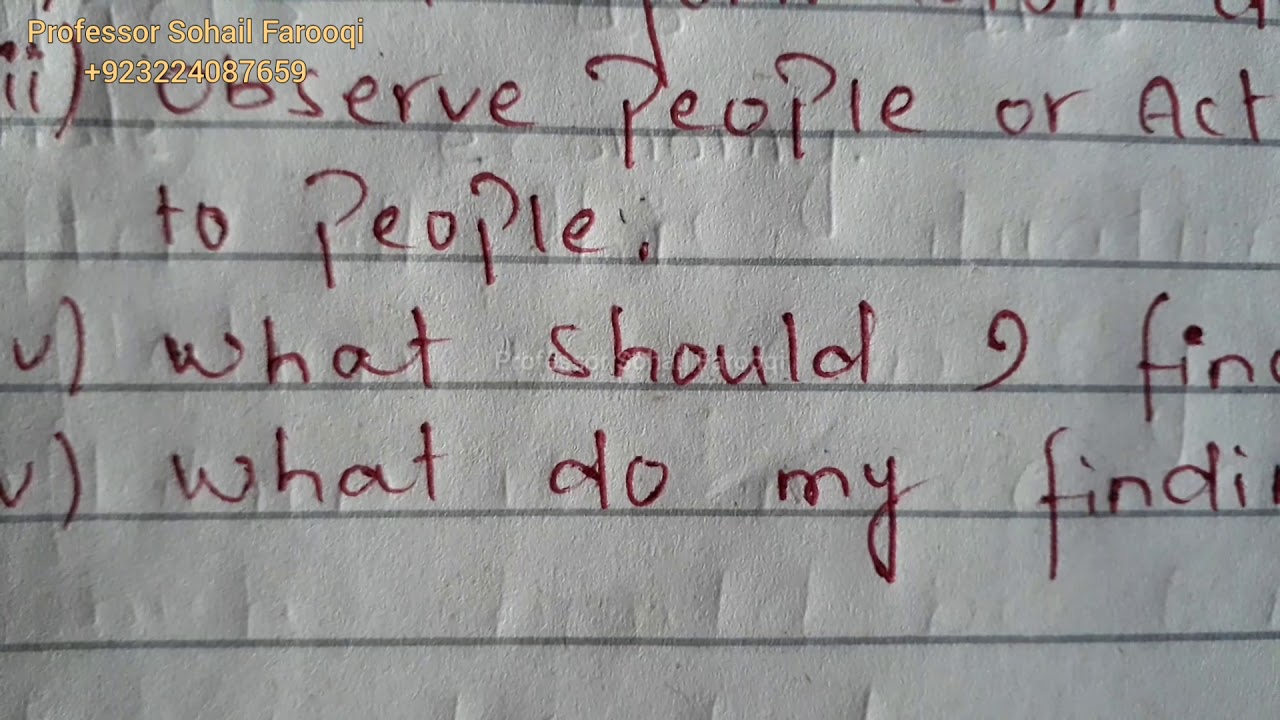 Professor Sohail Farooqi
+923224087659
ii) Observe People or Act
to People.
v) what should I find
Professor Sohail Farooqi
v) what do my findi